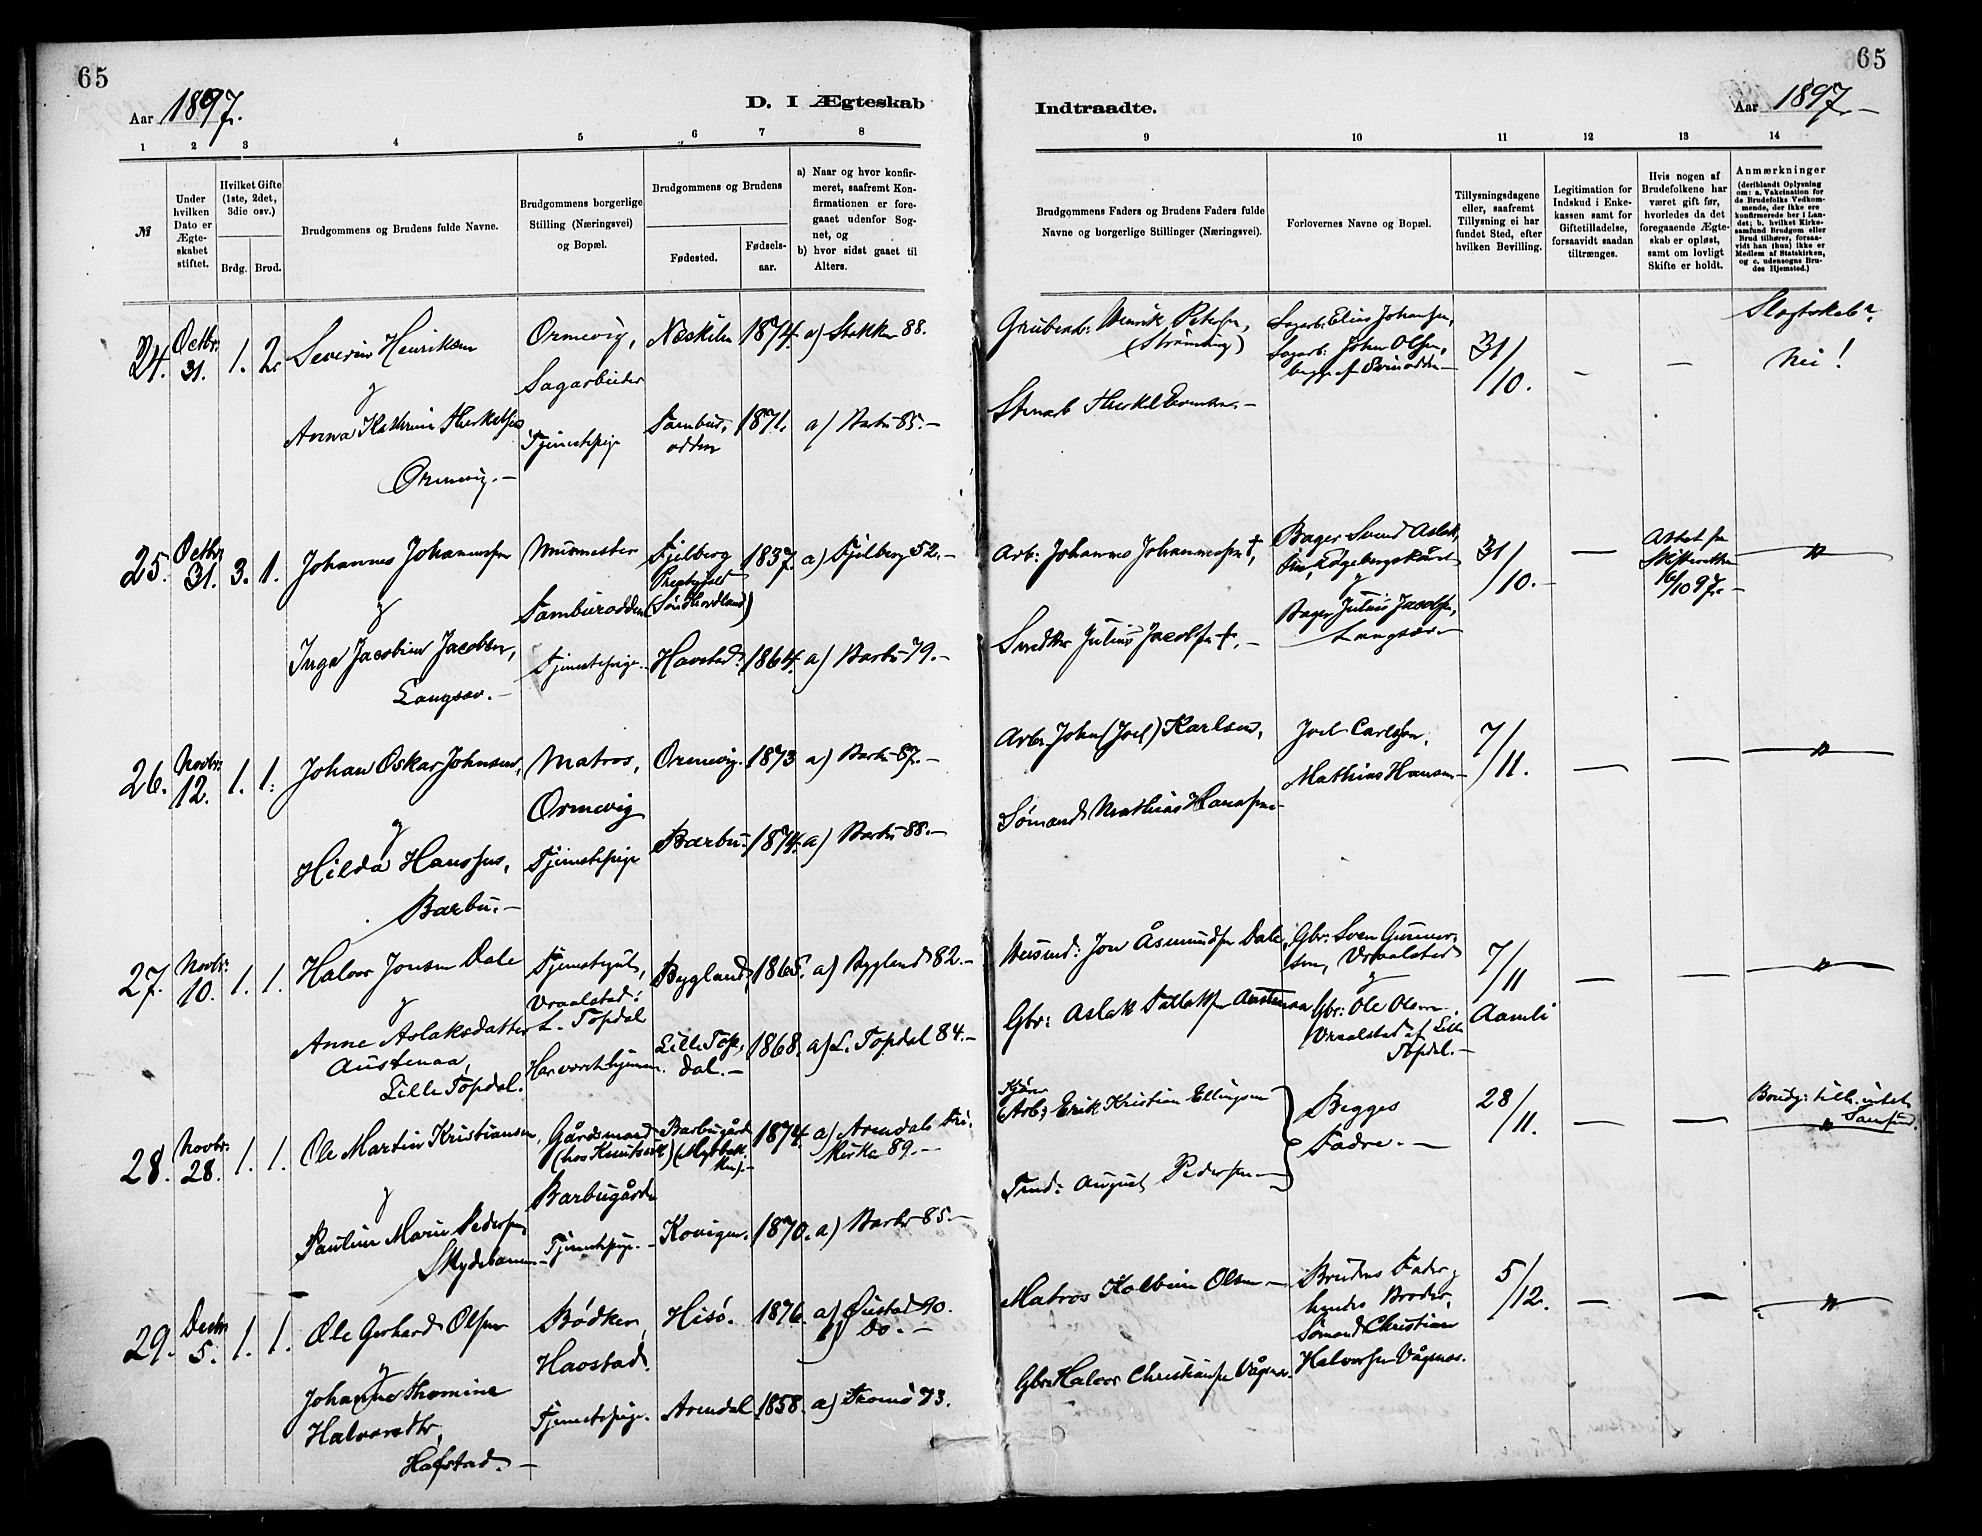 65
Aar 1897.
D. I Ægteskab
1 2 3 4 5 6 7 8
№
Under hvilken Dato er Ægteskabet stiftet.
Hvilket Gifte (1ste, 2det, 3die osv.)
Brdg. Brud.
Brudgommens og Brudens fulde Navne.
Brudgommens borgerlige Stilling (Næringsvei) og Bopæl.
Brudgommens og Brudens
Fødested.
Fødsels-aar.
a) Naar og hvor konfirmeret, saafremt Konfirmationen er foregaaet udenfor Sognet, og
b) hvor sidst gaaet til Alters.
24. Octbr. 31. 1. 2. Severin Henriksen
Ormevig, Sagarbeider
Næskilen 1874. a) Stokken 88.
Anna Kathrine Terkelsen
Ormevig.
Tjenestepige
Tamburodden 1871. a) Barbu 85.
25. Octbr. 31. 3. 1. Johannes Johannessen
Murmester
Tamburodden
Fjelberg Prestegjeld (Søndhordland) 1837. a) Fjelberg 52.
Inga Jacobine Jacobsen,
Langsæv.
Tjenestepige.
Havstad. 1864. a) Barbu 79.
26. Novbr. 12. 1. 1. Johan Oskar Johnsen,
Matros,
Ormevig
Ormevig. 1873 a) Barbu 87.
Hilda Hansen,
Barbu.
Tjenestepige
Barbu. 1874. a) Barbu 88.
27. Novbr. 10. 1. 1. Halvor Jonsen Dale
Tjenestegut,
Vraalstad i
L. Topdal
Bygland, 1865. a) Bygland 82.
Anne Aslaksdatter
Austenaa,
Lille Topdal.
Har været hjemme.
Lille Topdal. 1868. a) L. Topdal 84.
28. Novbr. 28. 1. 1. Ole Martin Kristiansen,
Gårdsmand
Barbugård
Barbugård 1874. a) Arendals
89.
Pauline Marie Pedersen,
Skydebanen
Tjenestepige.
1870. a) Barbu 85.
29. Decbr. 5. 1. 1. Ole Gerhard Olsen
Bødker,
Havstad.
Hisö. 1876. a) Øiestad 90.
b) do.
Johanne Thomine
Halvorsdtr,
Hafstad.
Tjenestepige.
Arendal 1858. a) Tromø 73.
65
Indtraadte.
Aar 1897
9 10 11 12 13 14
Brudgommens Faders og Brudens Faders fulde Navne og borgerlige Stillinger (Næringsvei).
Forlovernes Navne og Bopæl.
Tillysningsdagene eller, saafremt Tillysning ei har fundet Sted, efter hvilken Bevilling.
Legitimation for Indskud i Enkekassen samt for Giftetilladelse, forsaavidt saadan tiltrænges.
Hvis nogen af Brudefolkene har været gift før, hvorledes da det foregaaende Ægteskab er opløst, samt om lovligt Skifte er holdt.
Anmærkninger
(deriblandt Oplysning om: a. Vakcination for de Brudefolks Vedkommende, der ikke ere konfirmerede her i Landet; b. hvilket Kirkesamfund Brudgom eller Brud tilhører, forsaavidt han (hun) ikke er Medlem af Statskirken, og c. udensogns Brudes Hjemsted.)
Grubearb: Henrik Petersen,
Sagarb: Elias Johansen,
Sagarb: John Olsen,
31/10.
Slægtskab?
Nei!
Arb: Johannes Johannessen †,
Bager Svend Aslaksen,
31/10.
16/10 97.
Julius Jacobsen †.
Bager Julius Jacobsen,
Langsæv
Arb. John (Joel) Karlsen,
Joel Carlsen,
7/11.
Sømand Mathias Hansen
Mathias Hansen
Husmd: Jon Åsmundsen Dale,
Gbr: Sven Gunnersen, Vraalstad
7/11
Aamli
Gbr: Aslak Tallaksen Austenaa
Gbr: Ole Olsen
Vraalstad af Lille
Topdal.
Arb: Erik Kristian Ellingsen
Begges
Fædre.
28/11.
August Pedersen
Matros Kolbein Olsen
Brudens Fader &
hendes Broder,
Sømand Christian
Halvorsen Vågsnes.
5/12.
Gbr. Halvor Christiansen Vågsnes.